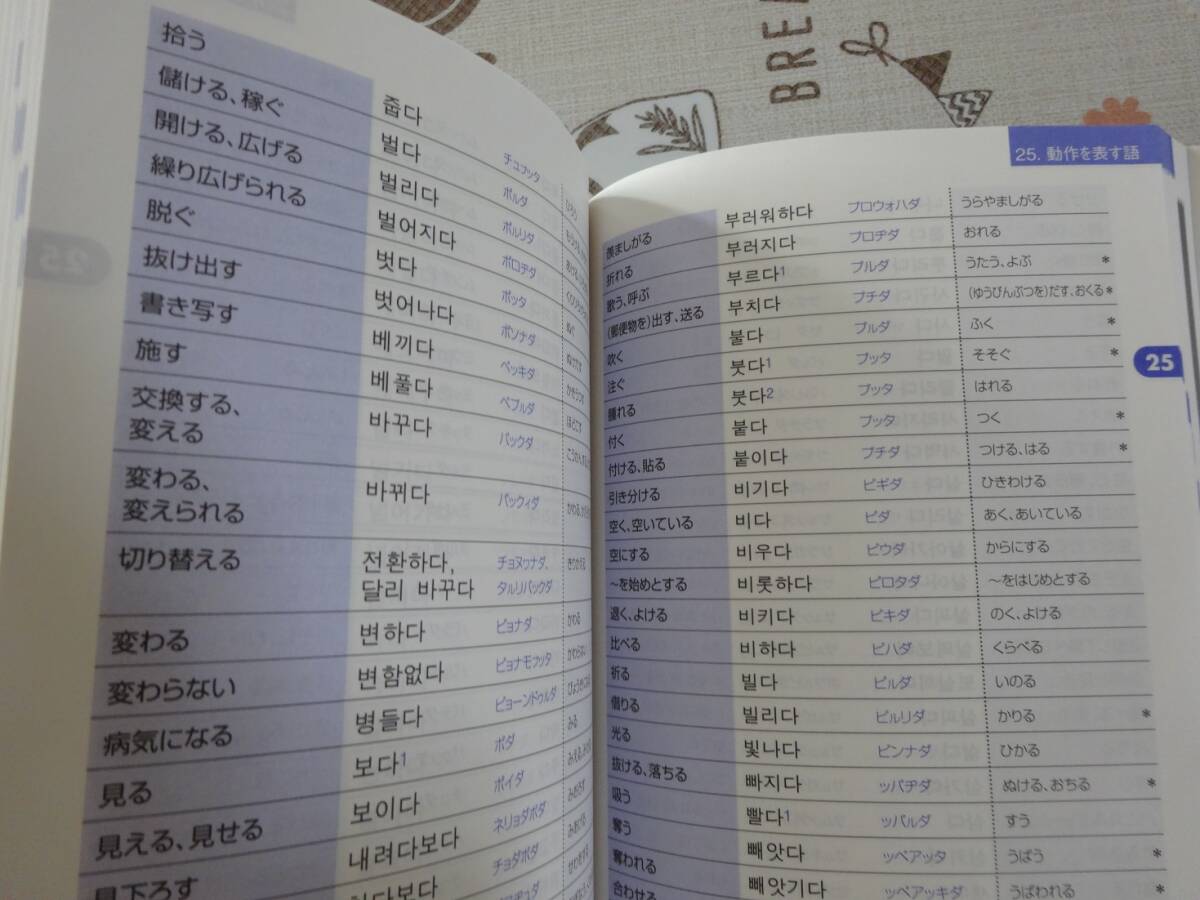 BRE
拾う 줍다 チュプッタ ひろう
儲ける、稼ぐ 벌다 ポルダ
開ける、広げる 벌리다 ポルリダ
繰り広げられる 벌어지다 ポロヂダ
脱ぐ 벗다 ポッタ ぬぐ
抜け出す 벗어나다 ポソナダ ぬけだす
書き写す 베끼다 ペッキダ かきうつす
施す 베풀다 ペプルダ ほどこす
交換する、
変える 바꾸다 パックダ
変わる、
変えられる 바뀌다 パックィダ
切り替える 전환하다, チョヌゥナダ、 きりかえる
달리 바꾸다 タルリパックダ
変わる 변하다 ピョナダ かわる
変わらない 변함없다 ピョナモプッタ かわらない
病気になる 병들다 ピョーンドゥルダ
見る 보다1 ポダ みる
見える、見せる 보이다 ポイダ
見下ろす 내려다보다 ネリョダボダ みおろす
チョダボダ
25. 動作を表す語
羨ましがる 부러워하다 プロウォハダ うらやましがる
折れる 부러지다 プロヂダ おれる
歌う、呼ぶ 부르다1 プルダ うたう、よぶ *
(郵便物を)出す、送る 부치다 プチダ (ゆうびんぶつを)だす、おくる *
吹く 불다 プルダ ふく *
注ぐ 붓다1 プッタ そそぐ *
腫れる 붓다2 プッタ はれる
付く 붙다 プッタ つく *
付ける、貼る 붙이다 プチダ つける、はる *
引き分ける 비기다 ピギダ ひきわける
空く、空いている 비다 ピダ あく、あいている
空にする 비우다 ピウダ からにする
~を始めとする 비롯하다 ピロタダ ~をはじめとする
退く、よける 비키다 ピキダ のく、よける
比べる 비하다 ピハダ くらべる
祈る 빌다 ピルダ いのる
借りる 빌리다 ピルリダ かりる *
光る 빛나다 ピンナダ ひかる
抜ける、落ちる 빠지다 ッパヂダ ぬける、おちる *
吸う 빨다1 ッパルダ すう
奪う 빼앗다 ッペアッタ うばう *
奪われる 빼앗기다 ッペアッキダ うばわれる *
合わせる
25